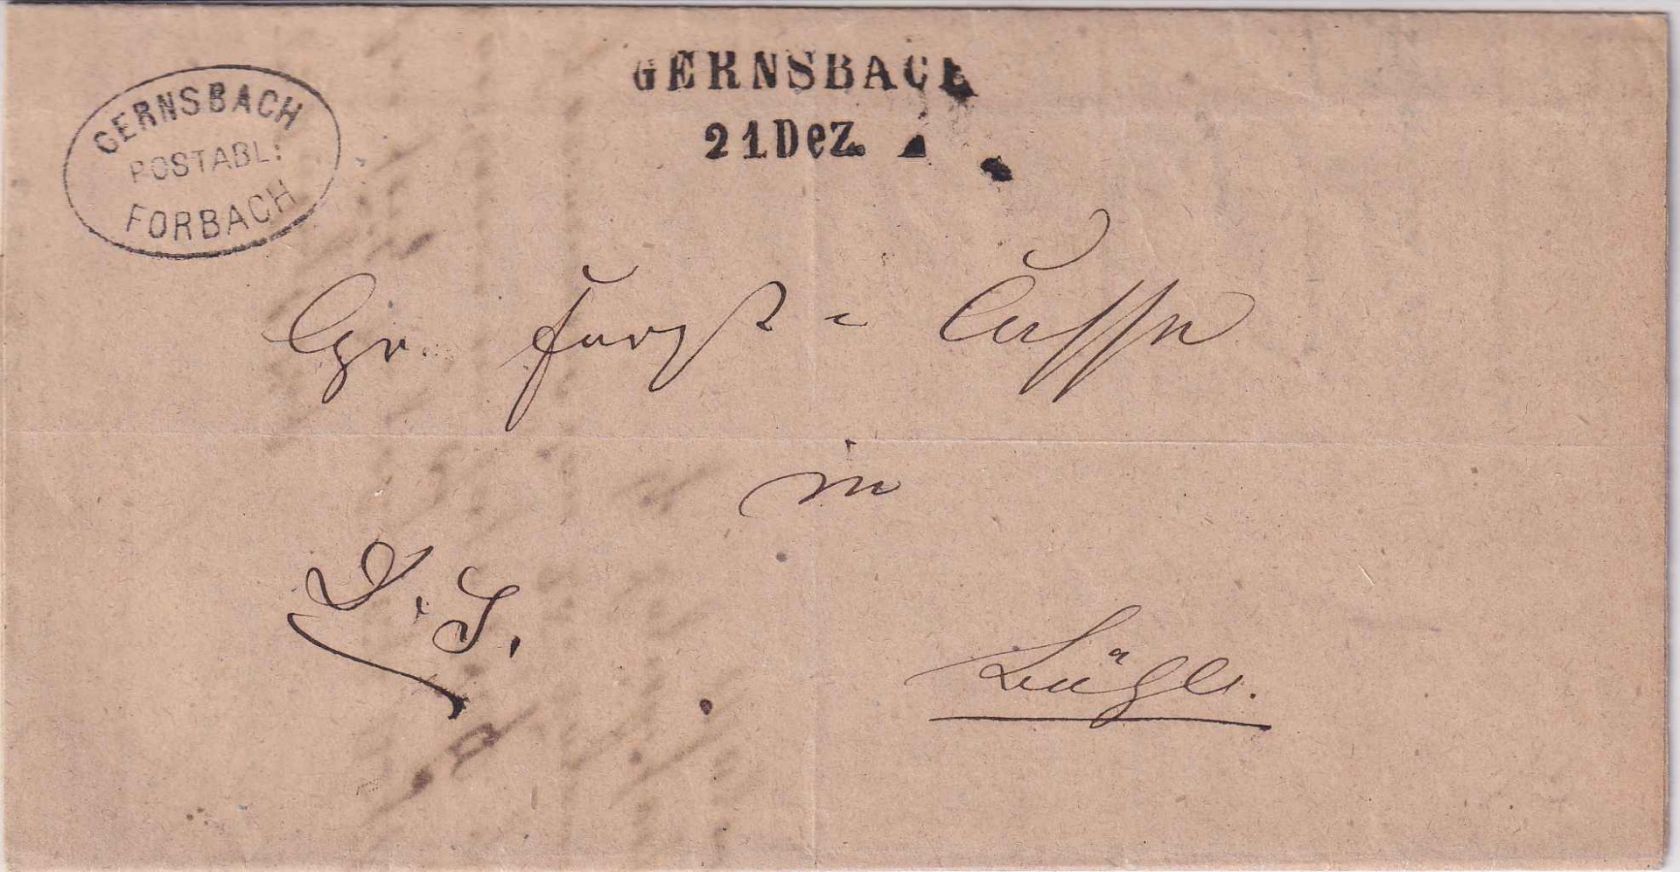 GERNSBACH
POSTABL:
FORBACH
GERNSBACH
21 Dez.
Gr. Forst-Casse
in
D. S.
Bühl.